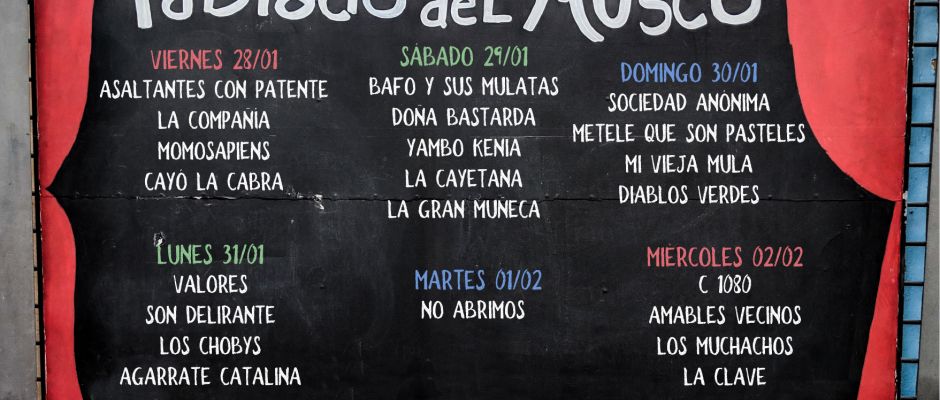 Tablado del Museo
VIERNES 28/01
ASALTANTES CON PATENTE
LA COMPAÑIA
MOMOSAPIENS
CAYÓ LA CABRA
SÁBADO 29/01
BAFO Y SUS MULATAS
DOÑA BASTARDA
YAMBO KENIA
LA CAYETANA
LA GRAN MUÑECA
DOMINGO 30/01
SOCIEDAD ANÓNIMA
METELE QUE SON PASTELES
MI VIEJA MULA
DIABLOS VERDES
LUNES 31/01
VALORES
SON DELIRANTE
LOS CHOBYS
AGARRATE CATALINA
MARTES 01/02
NO ABRIMOS
MIÉRCOLES 02/02
C 1080
AMABLES VECINOS
LOS MUCHACHOS
LA CLAVE